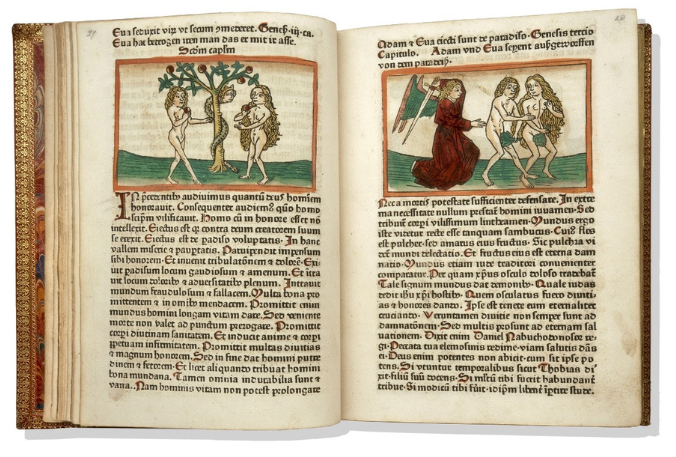 27
Eua seduxit virū vt secum ꝯmederet. Genes̄ .iij. ca.
Eua hat betrogen iren man das er mit ir asse.
Scdm caplm
IN p̄cedentib; audiuimus quantū deus hominē
honorauit. Consequenter audiemꝰ quō homo
seip̄m vilificauit. Homo cū in honore esset nō
intellexit. Eiectus est de padiso voluptatis. In hanc
vallem miserie ⁊ paupertatis. Parui pendit impensum
sibi honorem. Et inuenit tribulatōnem ⁊ dolorē. Exi
uit padisum locum gaudiosum ⁊ amenum. Et intra
uit locum doloris ⁊ aduersitatib; plenum. Intrauit
mundum fraudulosum ⁊ fallacem. Multa bona pro
mittentem ⁊ in omib; mendacem. Promittit enim
mundus homini longam vitam dare. Sed veniente
morte non valet ad punctum prorogare. Promittit
corpori diutinam sanitatem. Et inducit anime ⁊ corpi
perpetuam infirmitatem. Promittit multas diuitias
⁊ magnum honorem. Sed in fine dat homini putre
dinem ⁊ fetorem. Et licet aliquando tribuat homini
bona mundana. Tamen omnia indutabilia sunt ⁊
vana. Nam hominis vitam non potest prolongare
28
Adam ⁊ Eua eiecti sunt de paradiso. Genesis tercio
Capitulo. Adam vnd Eua seyent außgeworffen
von dem paradeiß.
Nec a mortis potestate sufficienter defensare. In extre
ma necessitate nullum prestat homini iuuamen. Sed
tribuit corpi vilissimum linthiamen. Mundus ergo
iste videtur recte esse tanquam sambucus. Cuiꝰ flos
est pulcher sed amarus eius fructus. Sic pulchra vi
detur mundi delectatio. Et fructus eius est eterna dam
natio. Mundus etiam iude traditori conuenienter
comparatur. Per quam xp̄us osculo doloso tradebat̄
Tale signum mundus dat demonib;. Quale iudas
dedit ibi xp̄i hostib;. Quem osculatus fuero diuiti
as ⁊ honores dando. Ipse est tenete eum eternaliter
cruciando. Verumtamen diuitie non semper sunt ad
damnatōnem. Sed multis prosunt ad eternam sal
uationem. Dixit enim Daniel Nabuchodonosor re⸗
gi. Peccata tua elemosinis redime ⁊ viam salutis dānis
ci. Deus enim potentes non abicit cum sit ipse po
tens. Si veruntur temporalibus sicut Thobias di
xit filiū suū docens. Si multū tibi fuerit habundant̄
tribue. Si modicū tibi fuit ⁊ idip̄m libent̄ īpertire stude.